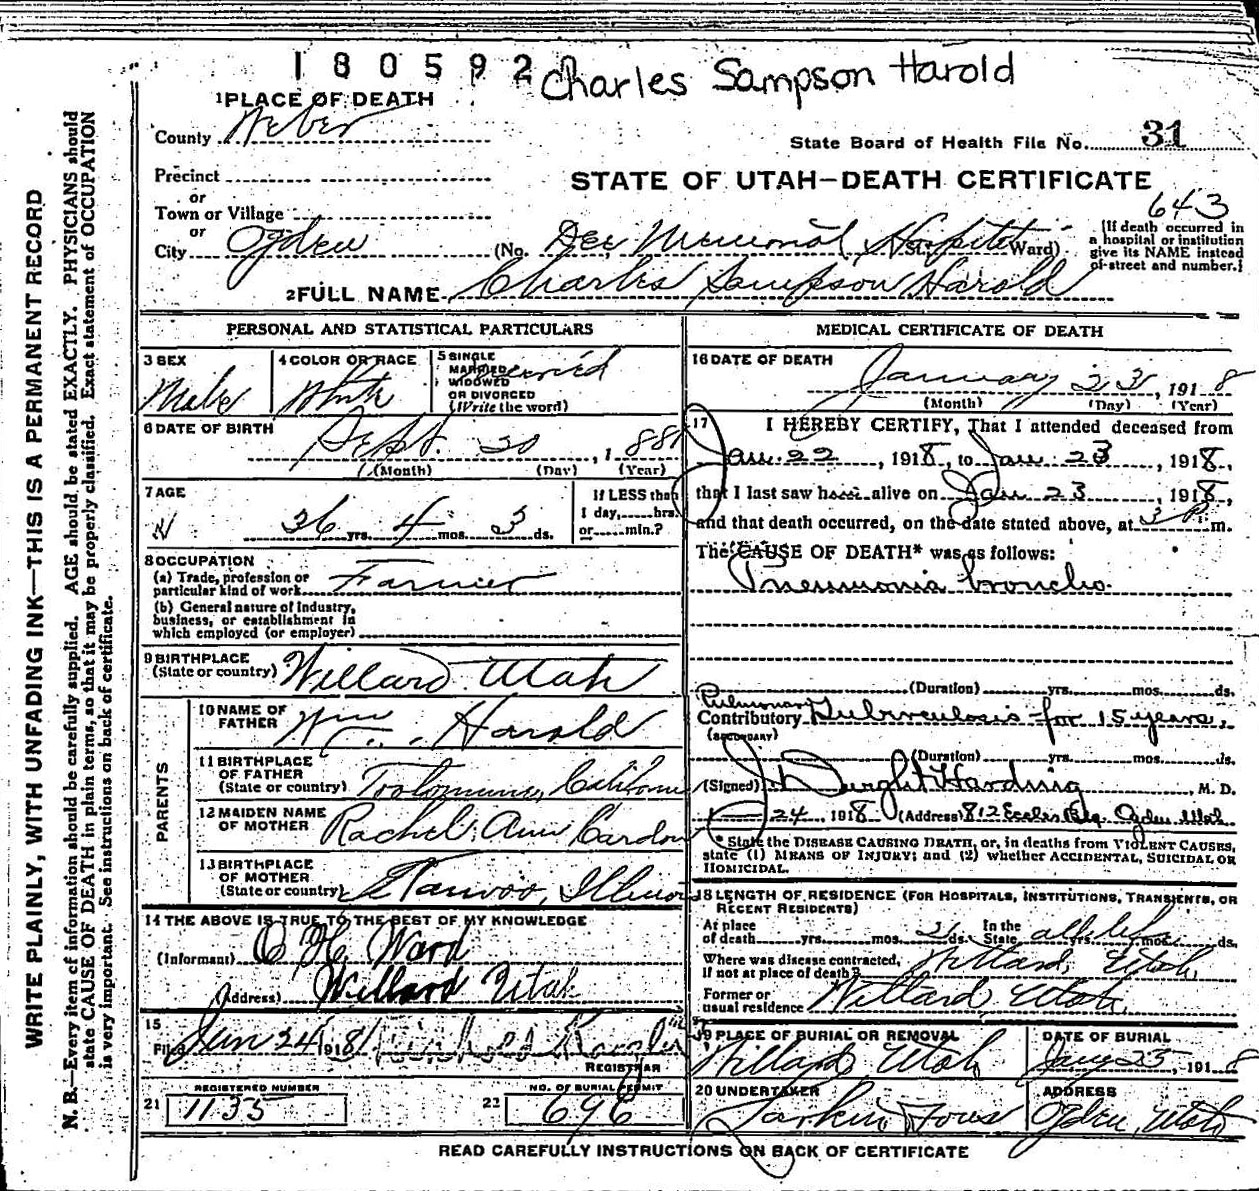 180592 Charles Sampson Harold
1 PLACE OF DEATH
County Weber
State Board of Health File No. 31
Precinct
or
Town or Village
or
City Ogden
STATE OF UTAH—DEATH CERTIFICATE
643
(No. Dee Memorial Hospital St. Ward)
(If death occurred in
a hospital or institution
give its NAME instead
of street and number.)
2 FULL NAME Charles Sampson Harold
PERSONAL AND STATISTICAL PARTICULARS
3 SEX
Male
4 COLOR OR RACE
White
5 SINGLE
MARRIED
WIDOWED
OR DIVORCED
(Write the word)
married
6 DATE OF BIRTH
Sept. 20, 1881
(Month) (Day) (Year)
7 AGE
36 yrs. 4 mos. 3 ds.
If LESS than
1 day, hrs.
or min.?
8 OCCUPATION
(a) Trade, profession or
particular kind of work Farmer
(b) General nature of Industry,
business, or establishment in
which employed (or employer)
9 BIRTHPLACE
(State or country) Willard Utah
PARENTS
10 NAME OF
FATHER Wm. Harold
11 BIRTHPLACE
OF FATHER
(State or country) California
12 MAIDEN NAME
OF MOTHER Rachel Ann Cardon
13 BIRTHPLACE
OF MOTHER
(State or country) Nauvoo, Illinois
14 THE ABOVE IS TRUE TO THE BEST OF MY KNOWLEDGE
(Informant) O H Ward
(Address) Willard Utah
15
Filed Jan 24 1918
REGISTRAR
REGISTERED NUMBER
21 1135
NO. OF BURIAL PERMIT
22 696
MEDICAL CERTIFICATE OF DEATH
16 DATE OF DEATH
January 23, 1918
(Month) (Day) (Year)
17 I HEREBY CERTIFY, That I attended deceased from
Jan. 22, 1918, to Jan. 23, 1918,
that I last saw him alive on Jan 23, 1918,
and that death occurred, on the date stated above, at 3 P. m.
The CAUSE OF DEATH* was as follows:
Pneumonia broncho.
(Duration) yrs. mos. ds.
Pulmonary
Contributory Tuberculosis for 15 years.
(SECONDARY)
(Duration) yrs. mos. ds.
(Signed) Dwight Harding, M. D.
24, 1918 (Address) 812 Eccles Bldg. Ogden Utah
* State the DISEASE CAUSING DEATH, or, in deaths from VIOLENT CAUSES,
state (1) MEANS OF INJURY; and (2) whether ACCIDENTAL, SUICIDAL OR
HOMICIDAL.
18 LENGTH OF RESIDENCE (FOR HOSPITALS, INSTITUTIONS, TRANSIENTS, OR
RECENT RESIDENTS)
At place
of death yrs. mos. 2 ds. In the
State all life yrs. mos. ds.
Where was disease contracted,
if not at place of death? Willard, Utah
Former or
usual residence Willard Utah,
19 PLACE OF BURIAL OR REMOVAL
Willard, Utah
DATE OF BURIAL
Jany 25, 1918
20 UNDERTAKER
Larkin Sons
ADDRESS
Ogden, Utah
READ CAREFULLY INSTRUCTIONS ON BACK OF CERTIFICATE
WRITE PLAINLY, WITH UNFADING INK—THIS IS A PERMANENT RECORD
N. B.—Every item of information should be carefully supplied. AGE should be stated EXACTLY. PHYSICIANS should
state CAUSE OF DEATH in plain terms, so that it may be properly classified. Exact statement of OCCUPATION
is very important. See instructions on back of certificate.